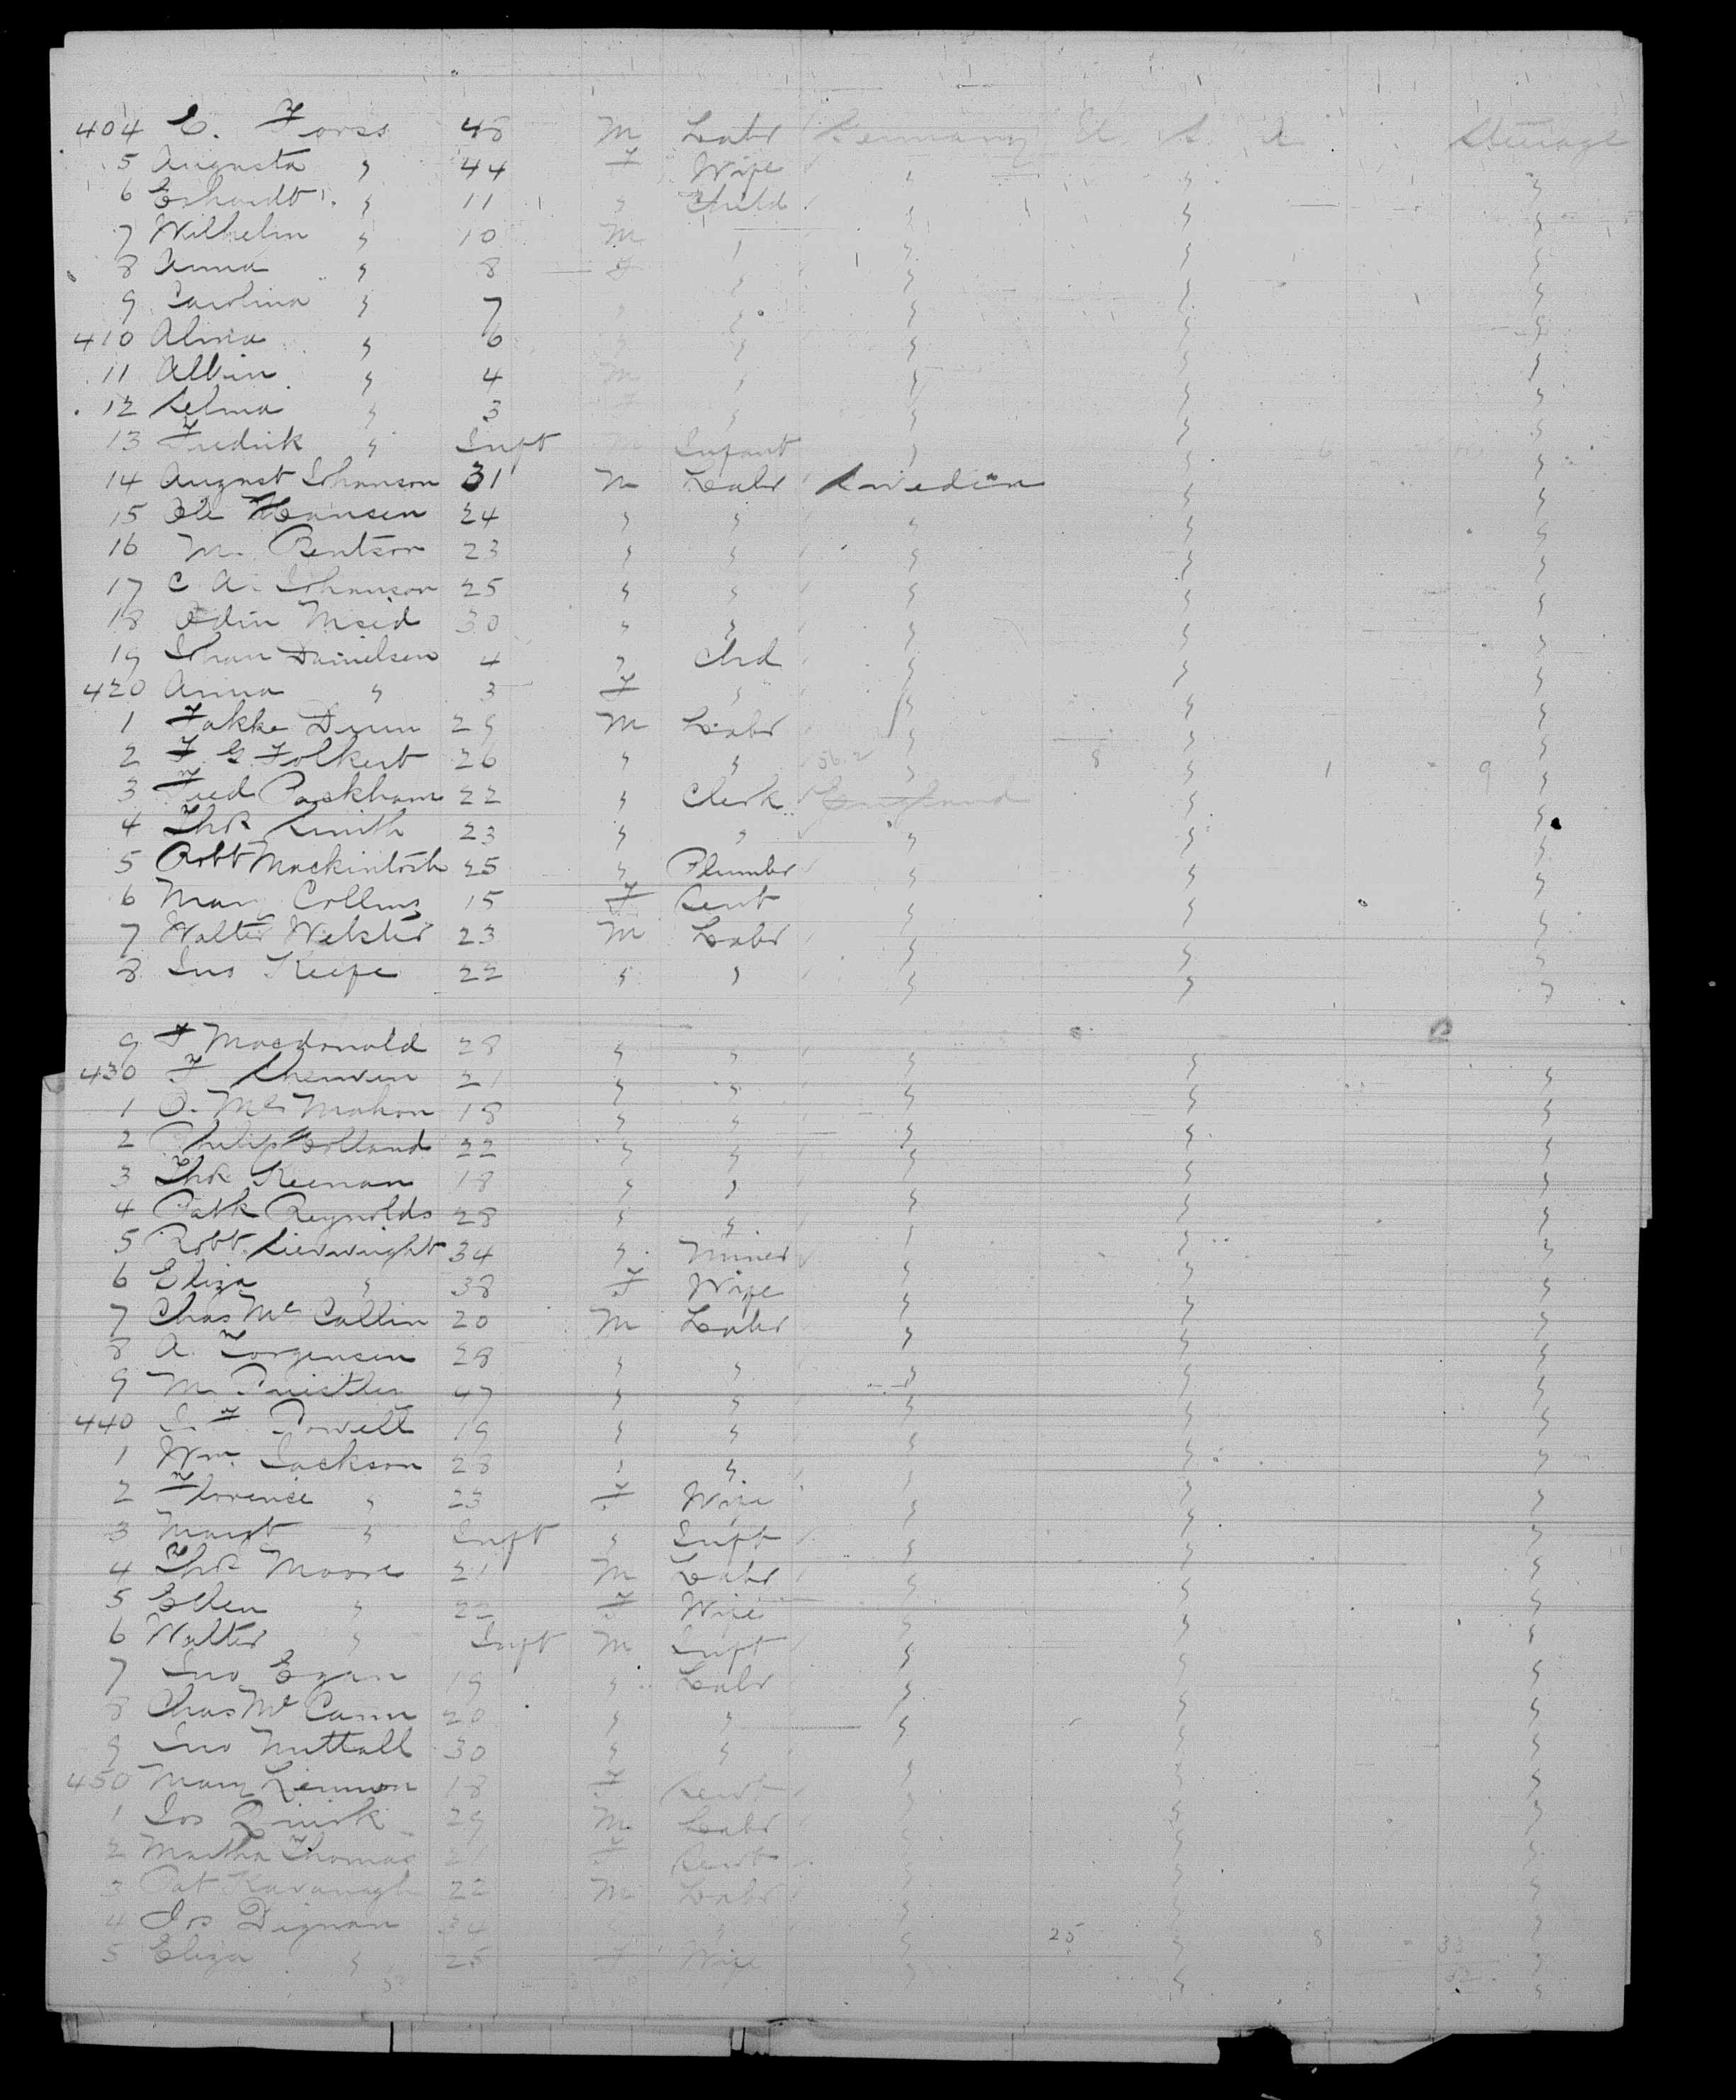 404 C. Forss 48 M Labr Germany U. S. A Steerage
5 Augusta " 44 F Wife " " "
6 Erhardt " 11 " Child " " "
7 Wilhelm " 10 M " " " "
8 Anna " 8 F " " " "
9 Carolina " 7 " " " " "
410 Alma " 6 " " " " "
11 Albin " 4 M " " " "
12 Selma " 3 F " " " "
13 Fredrik " Inft M Infant " " "
14 August Johanson 31 M Labr Sweden " "
15 Ole Hansen 24 " " " " "
16 M. Bentson 23 " " " " "
17 C A. Johanson 25 " " " " "
18 Odin 30 " " " " "
19 Johan Danielsen 4 " Chd " " "
420 Anna " 3 F " " " "
1 Fokke Dunn 29 M Labr " " "
2 F. G. Folkert 26 " " " 8 " 1 9 "
3 Fred Packham 22 " Clerk England " "
4 Thos Smith 23 " " " " "
5 Robt Mackintosh 25 " Plumbr " " "
6 Mary Collins 15 F Servt " " "
7 Walter Webster 23 M Labr " " "
8 Jno Keefe 22 " " " " "
9 F Macdonald 28 " " " " "
430 F Sherwin 21 " " " " "
1 P. McMahon 18 " " " " "
2 Philip Holland 22 " " " " "
3 Thos Keenan 18 " " " " "
4 Patk Reynolds 28 " " " " "
5 Robt 34 " Miner " " "
6 Eliza " 38 F Wife " " "
7 Chas Mc Callin 20 M Labr " " "
8 A. Torgensen 28 " " " " "
9 M. Priestley 47 " " " " "
440 J. F. Powell 19 " " " " "
1 Wm. Jackson 28 " " " " "
2 Florence " 23 F Wife " " "
3 Margt " Inft " Inft " " "
4 Thos Moore 21 M Labr " " "
5 Ellen " 22 F Wife " " "
6 Walter " Inft M Inft " " "
7 Jno Egan 19 " Labr " " "
8 Chas Mc Cann 20 " " " " "
9 Jno Nuttall 30 " " " " "
450 Mary Lennon 18 F Servt " " "
1 Jos Quirk 29 M Labr " " "
2 Martha Thomas 21 F Servt " " "
3 Pat Kavanagh 22 M Labr " " "
4 Jos Dignan 34 " " " 25 " 8 33 "
5 Eliza " 25 F Wife " " "